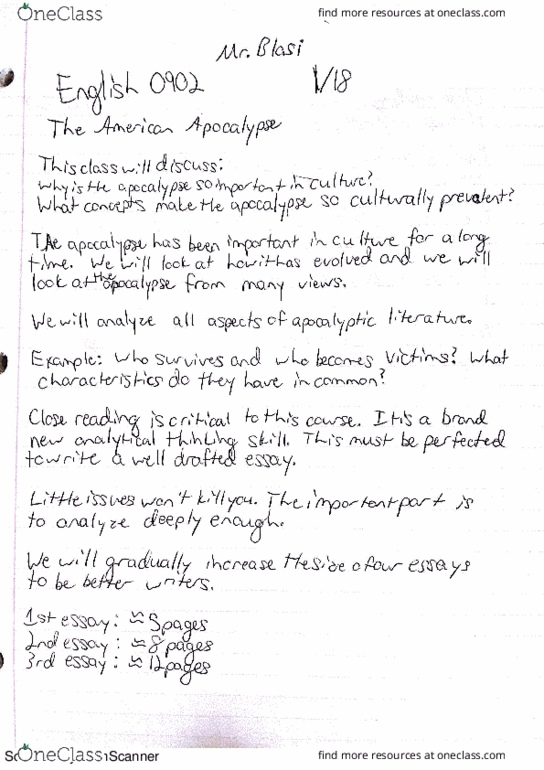 OneClass
find more resources at oneclass.com
Mr. Blasi
English 0902
1/18
The American Apocalypse
This class will discuss:
Why is the apocalypse so important in culture?
What concepts make the apocalypse so culturally prevalent?
The apocalypse has been important in culture for a long
time. We will look at how it has evolved and we will
look at the apocalypse from many views.
We will analyze all aspects of apocalyptic literature.
Example: Who survives and who becomes victims? What
characteristics do they have in common?
Close reading is critical to this course. It is a brand
new analytical thinking skill. This must be perfected
to write a well drafted essay.
Little issues won't kill you. The important part is
to analyze deeply enough.
We will gradually increase the size of our essays
to be better writers.
1st essay: ≈ 5 pages
2nd essay: ≈ 8 pages
3rd essay: ≈ 12 pages
OneClass
Scanner
find more resources at oneclass.com